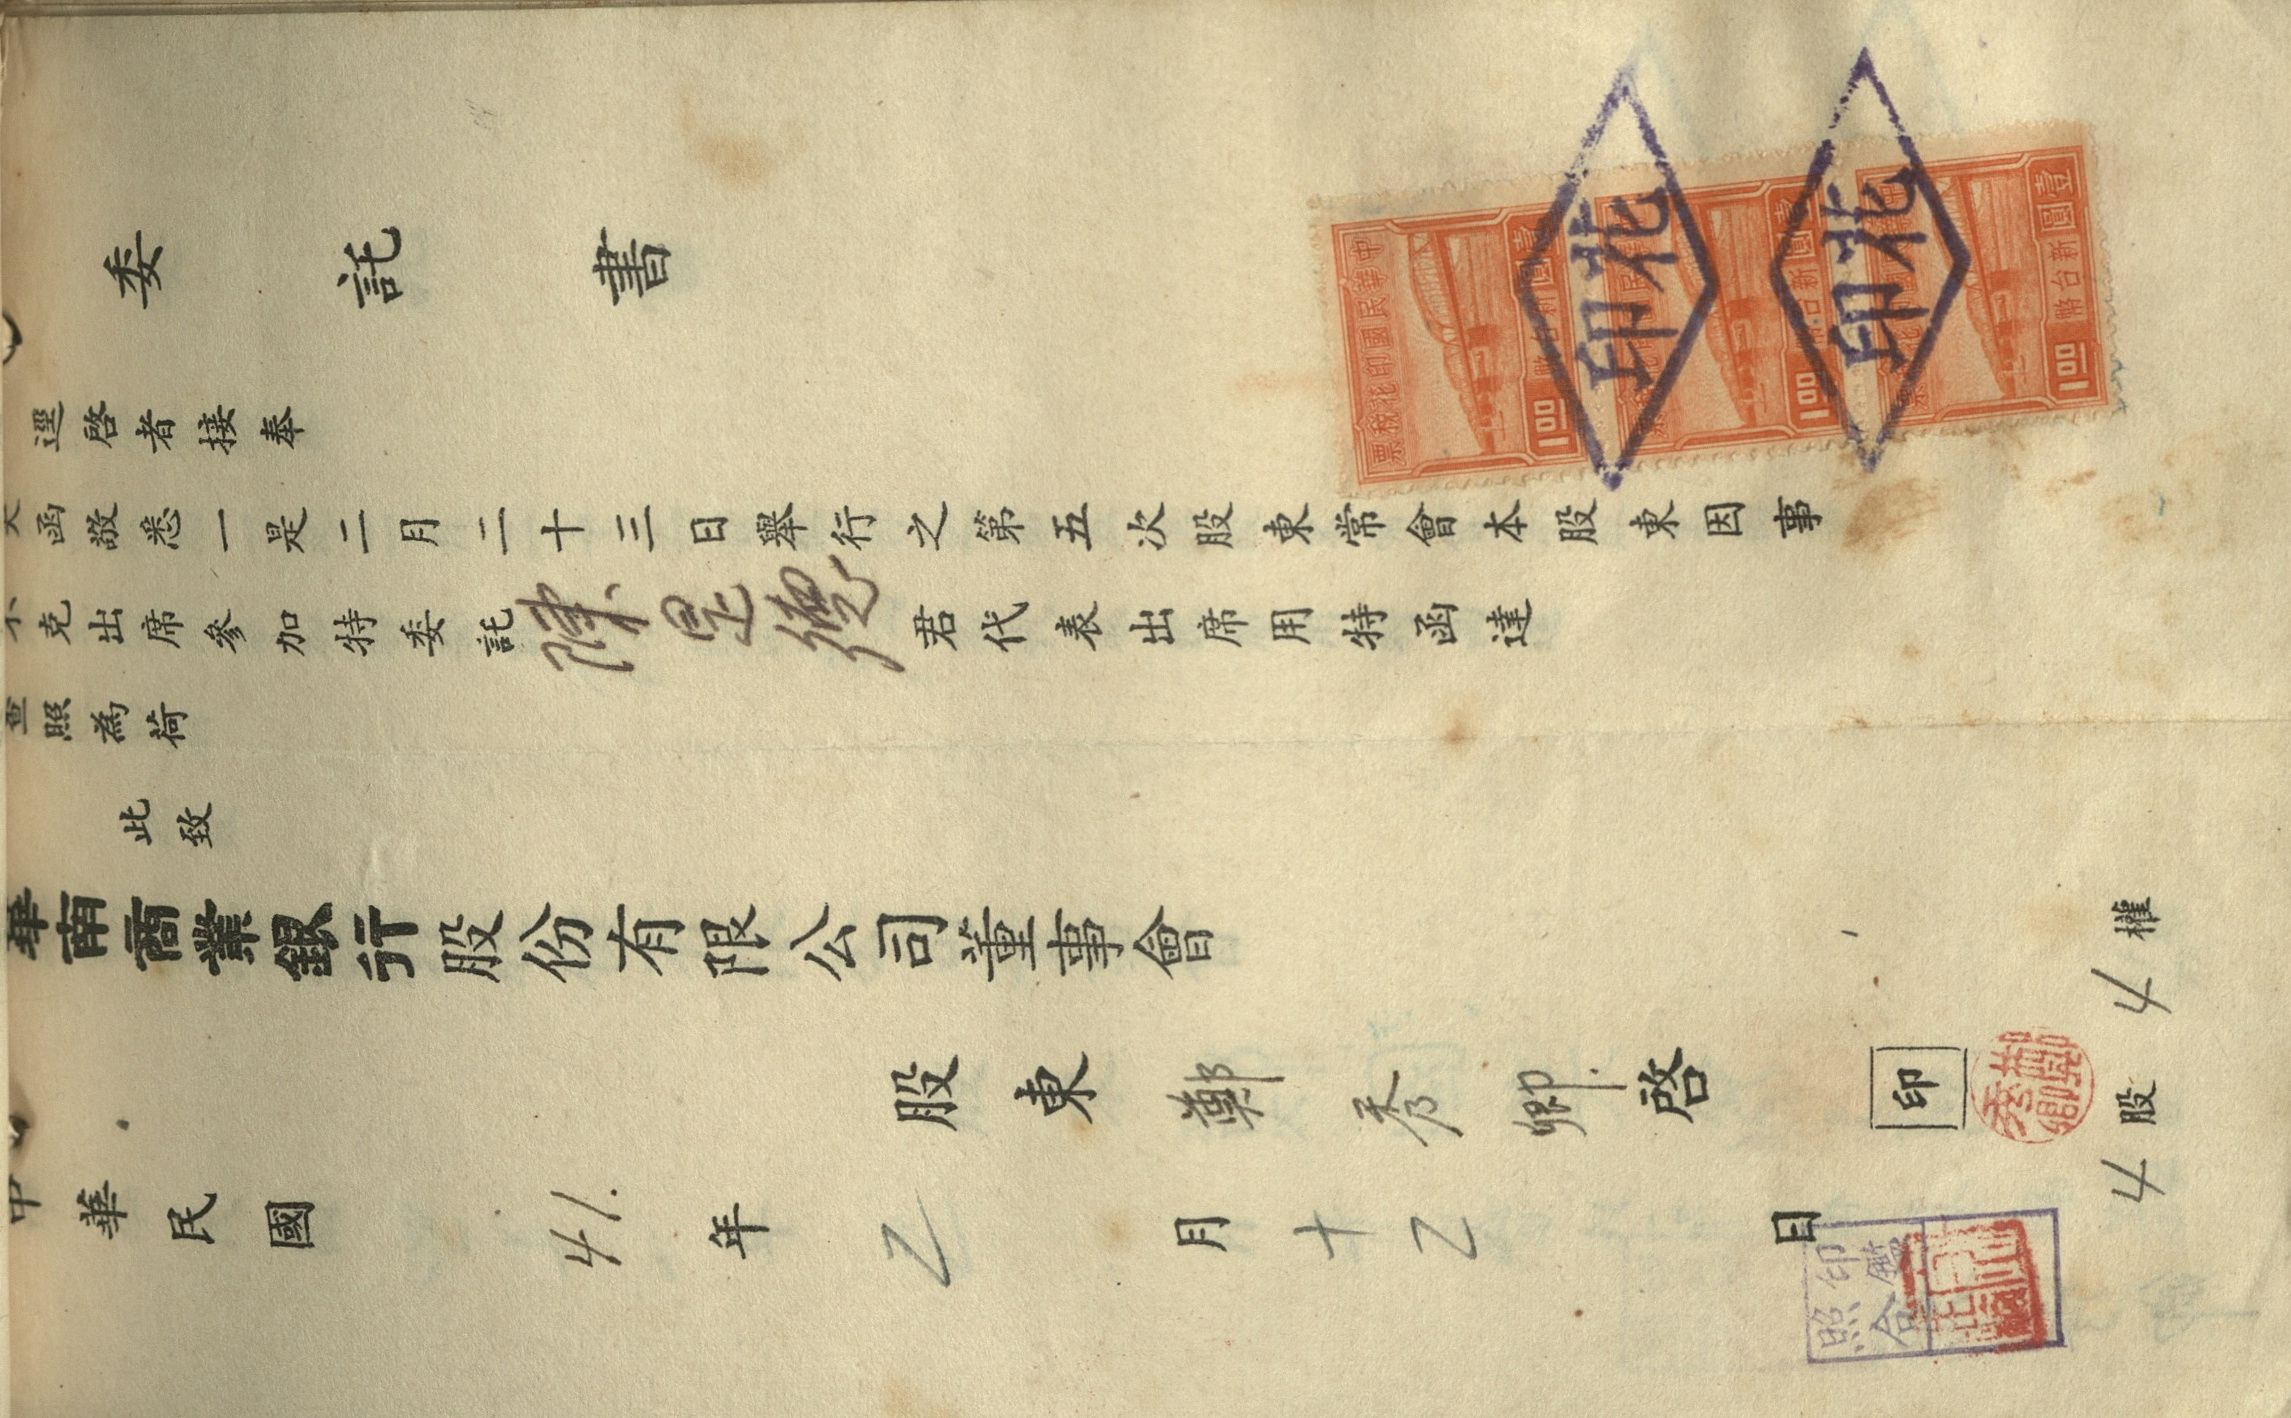 委託書
逕啓者接奉
大函敬悉一是二月二十三日舉行之第五次股東常會本股東因事
不克出席參加特委託陳逸君代表出席用特函達
查照為荷
此致
華南商業銀行股份有限公司董事會
股東鄭秀卿啓
印
鄭秀卿
4股4權
中華民國41.年2月十2日
印鑑照合
中華民國印花稅票
壹圓新台幣
1.00
壹圓新台幣
1.00
壹圓新台幣
1.00
印花
印花